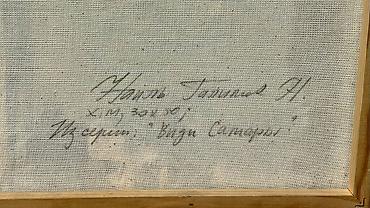 Наиль Галимов Н.
х.м, 30х40;
Из серии: "Види Самары"